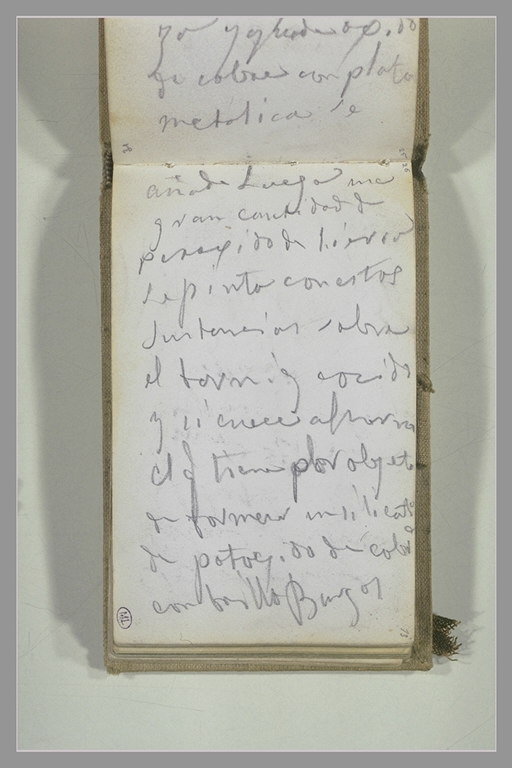 y
de cobre con plata
metalica se
añade Luego una
gran cantidad de
peroxido de hierro
se pinta con estas
sustancias sobre
el barniz cocido
y se cuece al horno
el q tiene por objeto
de formar un silicato
de de cobre
con brillo Burgos
73
ML